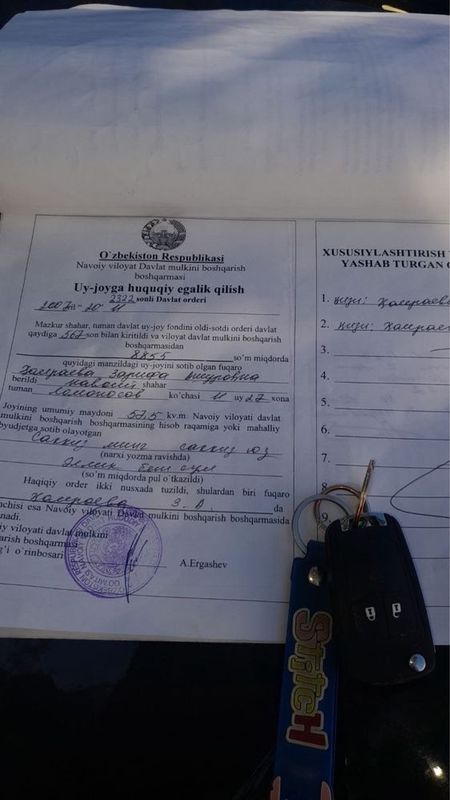 O`zbekiston Respublikasi
Navoiy viloyat Davlat mulkini boshqarish
boshqarmasi
Uy-joyga huquqiy egalik qilish
2322 sonli Davlat orderi
Mazkur shahar, tuman davlat uy-joy fondini oldi-sotdi orderi davlat
qaydiga 567 son bilan kiritildi va viloyat davlat mulkini boshqarish
boshqarmasidan
8855 so`m miqdorda
quyidagi manzildagi uy-joyini sotib olgan fuqaro
Хамраева Зарифа
berildi Навоий shahar
tuman Ломоносов ko`chasi 11 uy 27 xona
Joyining umumiy maydoni 57,5 kv.m Navoiy viloyati davlat
mulkini boshqarish boshqarmasining hisob raqamiga yoki mahalliy
byudjetga sotib olayotgan
Саккиз минг саккиз юз
(narxi yozma ravishda)
Эллик беш сўм
(so`m miqdorda pul o`tkazildi)
Haqiqiy order ikki nusxada tuzildi, shulardan biri fuqaro
Хамраева З. da
nchisi esa Navoiy viloyati Davlat mulkini boshqarish boshqarmasida
anadi.
iy viloyati davlat mulkini
qarish boshqarmasi
g'i o`rinbosari
A.Ergashev
XUSUSIYLASHTIRISH
YASHAB TURGAN
1. қизи: Хамраева
2. қизи: Хамраев
3.
4.
5.
6.
7.
8
9
STITCH